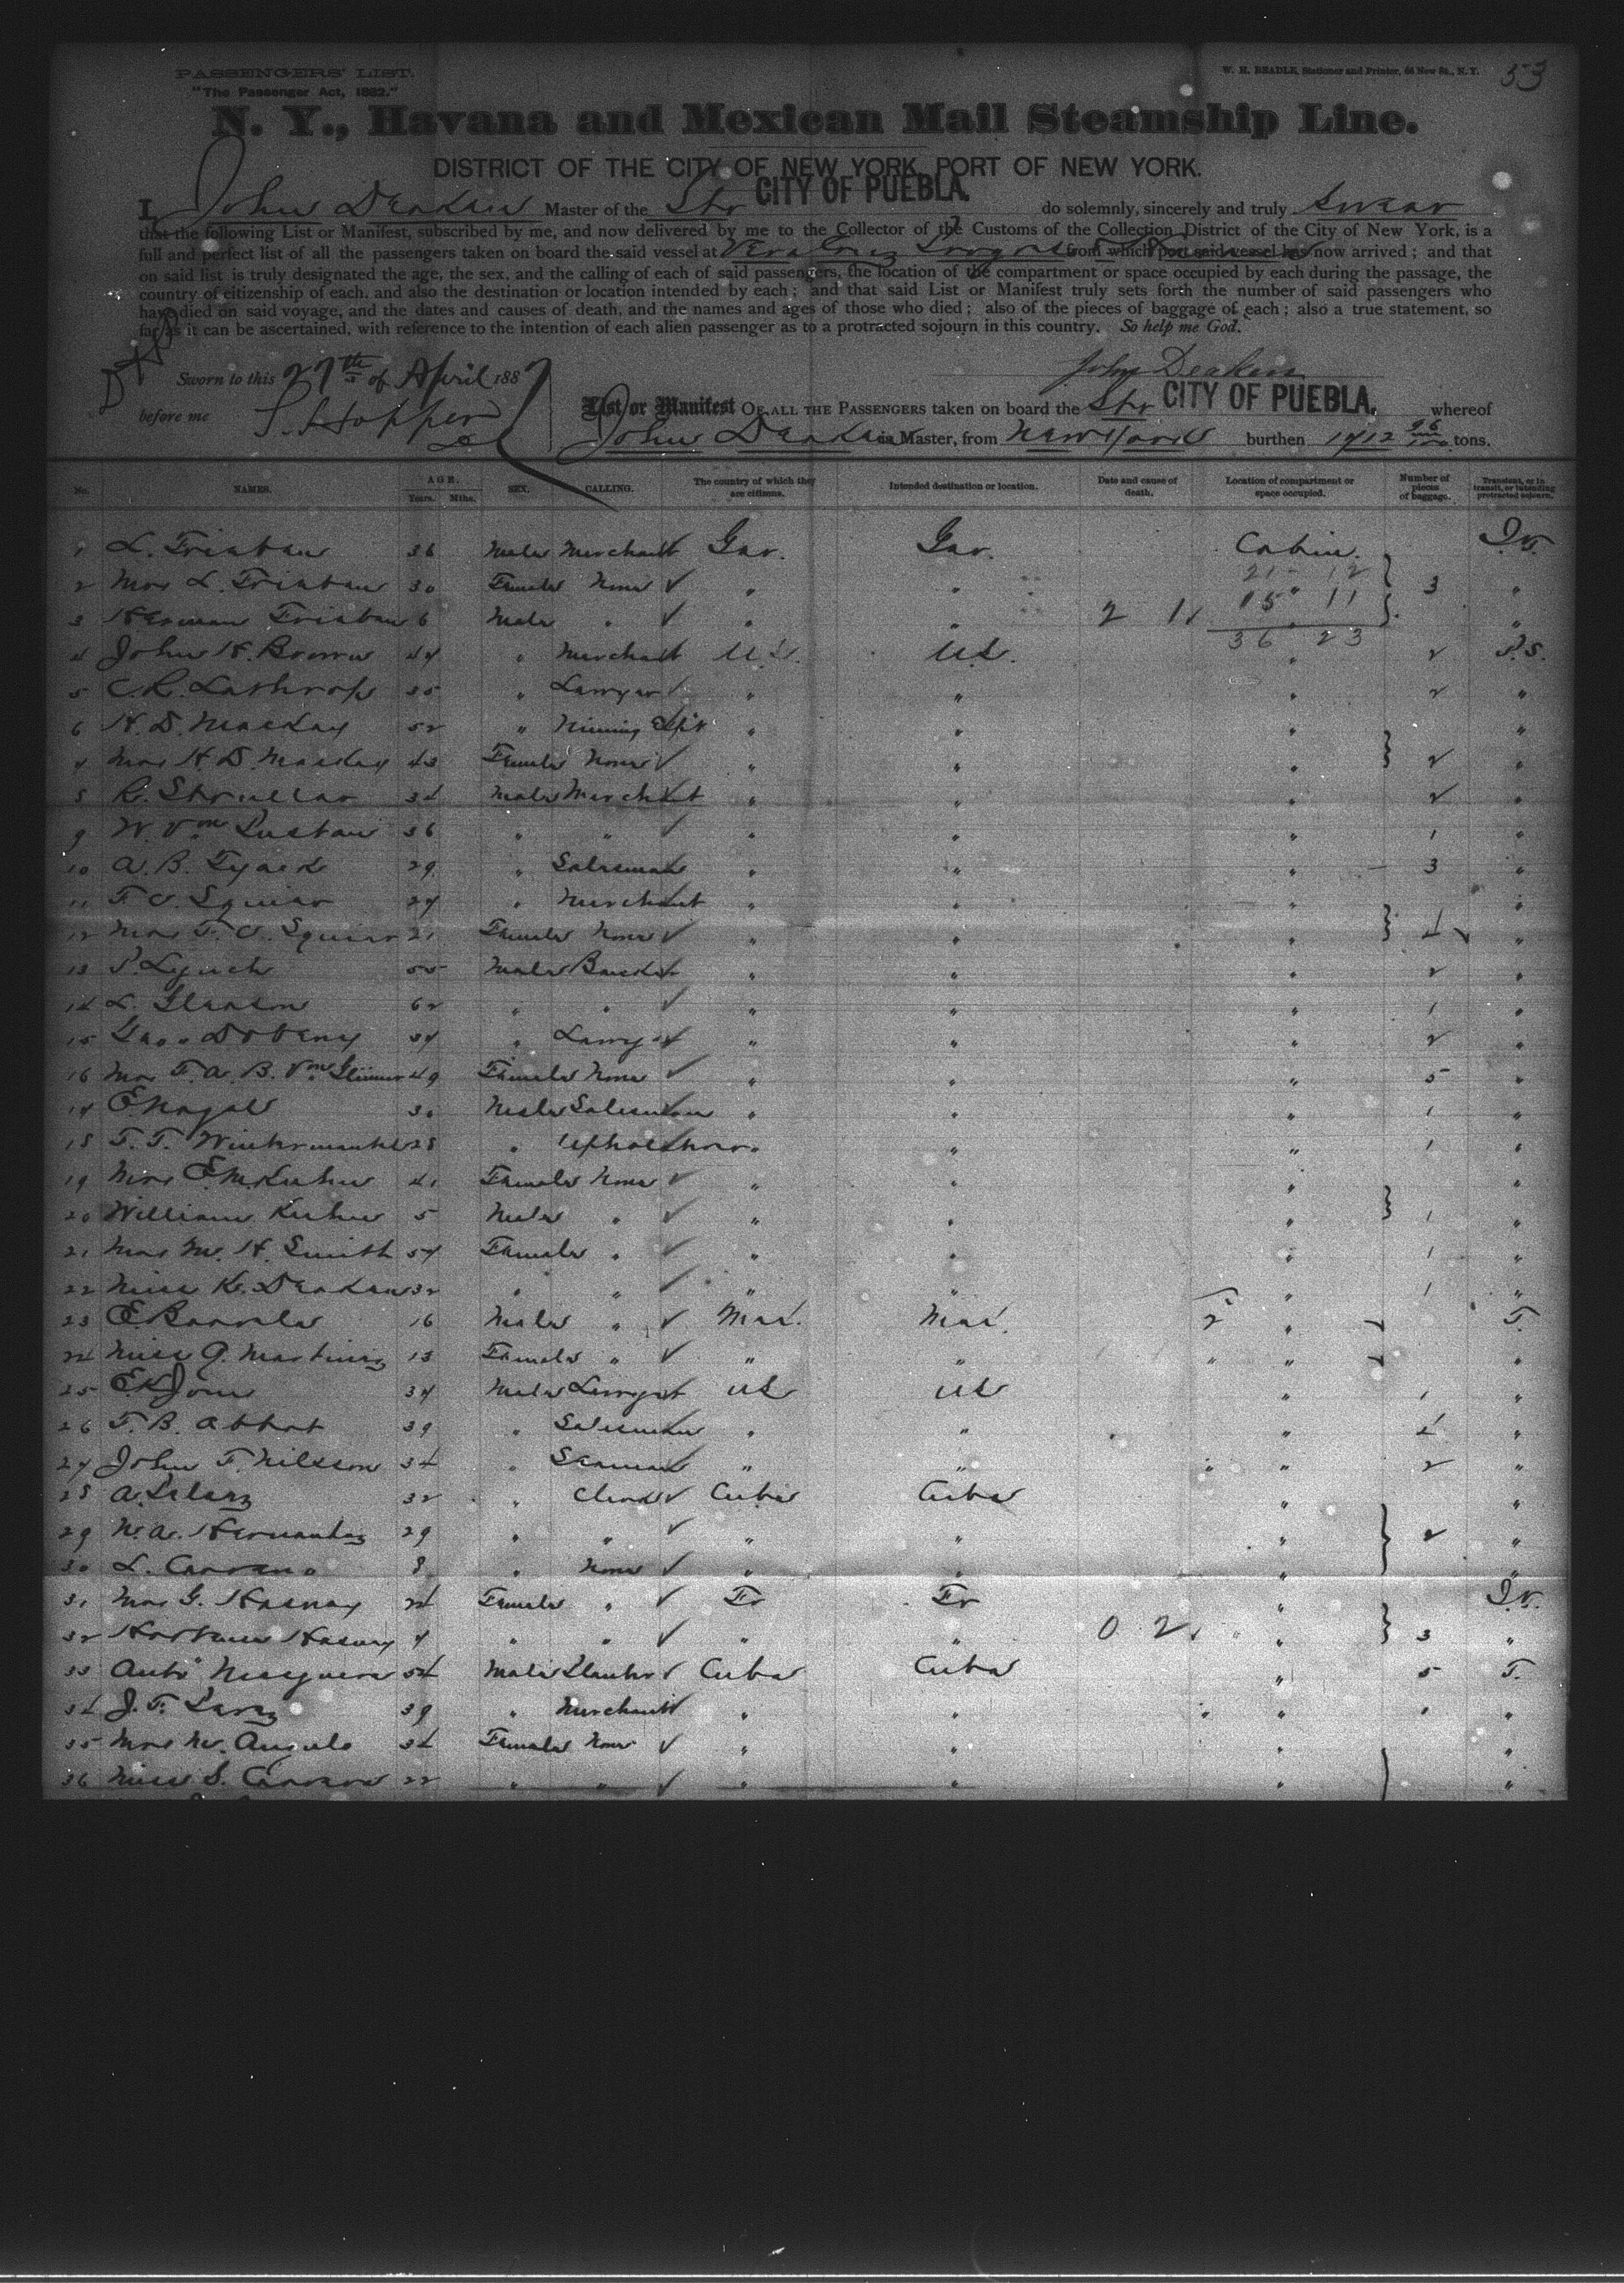 PASSENGERS' LIST.
"The Passenger Act, 1882."
W. H. BEADLE, Stationer and Printer, New St., N. Y.
53
N. Y., Havana and Mexican Mail Steamship Line.
DISTRICT OF THE CITY OF NEW YORK, PORT OF NEW YORK.
I, John Deaken Master of the Str CITY OF PUEBLA. do solemnly, sincerely and truly swear
that the following List or Manifest, subscribed by me, and now delivered by me to the Collector of the Customs of the Collection District of the City of New York, is a
full and perfect list of all the passengers taken on board the said vessel at Vera Cruz from which port said vessel has now arrived; and that
on said list is truly designated the age, the sex, and the calling of each of said passengers, the location of the compartment or space occupied by each during the passage, the
country of citizenship of each, and also the destination or location intended by each; and that said List or Manifest truly sets forth the number of said passengers who
have died on said voyage, and the dates and causes of death, and the names and ages of those who died; also of the pieces of baggage of each; also a true statement, so
far as it can be ascertained, with reference to the intention of each alien passenger as to a protracted sojourn in this country. So help me God.
Sworn to this 27th of April 1887 John Deaken
before me S. Hopper
List or Manifest OF ALL THE PASSENGERS taken on board the Str CITY OF PUEBLA, whereof
John Deaken is Master, from New York burthen 1712 tons.
No. NAMES. AGE. Years. Mths. SEX. CALLING. The country of which they are citizens. Intended destination or location. Date and cause of death. Location of compartment or space occupied. Number of pieces of baggage. Transient, or in transit, or intending protracted sojourn.
1 L. Triaban 36 Male Merchant Ger. Ger. Cabin
2 Mrs L. Triaban 30 Female None " " 21 12 " 3 "
3 Herman Triaban 6 Male " " " 2 11 15 11 " "
4 John H. Brown 47 " Merchant U.S. U.S. 36 23 " 2 P.S.
5 C. R. Lathrop 35 " Lawyer " " " 2 "
6 H. D. Mackay 52 " Mining " " " "
7 Mrs H. D. Mackay 43 Female None " " " 2 "
8 34 Male Merchant " " " 2 "
9 W. Von 36 " " " " " 1 "
10 A. B. 29 " Salesman " " " 3 "
11 F. O. Squier 27 " Merchant " " " "
12 Mrs F. O. Squier 21 Female None " " " 4 "
13 P. Lynch 55 Male Banker " " " 2 "
14 L. Gleason 62 " " " " " 1 "
15 Geo. 37 " Lawyer " " " 2 "
16 Mrs F. A. B. Von 49 Female None " " " 5 "
17 E. Nagale Male Salesman " " " 1 "
18 F. F. 28 " Upholsterer " " " 1 "
19 Mrs E. M. Kuhn 41 Female None " " " "
20 William Kuhn 5 Male " " " " 1 "
21 Mrs M. H. Smith 57 Female " " " " 1 "
22 Miss K. Deaken 32 " " " " " 1 "
23 E. 16 Male " Mex. Mex. 2 " T.
24 Miss G. Martinez 13 Female " " " " " "
25 E. K. Jones 37 Male Lawyer US US " 1 "
26 F. B. Abbot 39 " Salesman " " " 4 "
27 John F. Nilsson 34 " Seaman " " " 2 "
28 A. 32 " Clerk Cuba Cuba " "
29 N. A. Hernandez 29 " " " " " 2 "
30 L. 8 " None " " " "
31 Mrs G. 24 Female " Fr Fr "
32 7 " " " " 0 2 " 3 "
33 54 Male Planter Cuba Cuba " 5 T.
34 J. F. 39 " Merchant " " " " "
35 Mrs M. Angulo 34 Female None " " " "
36 Miss S. 22 " " " " " "